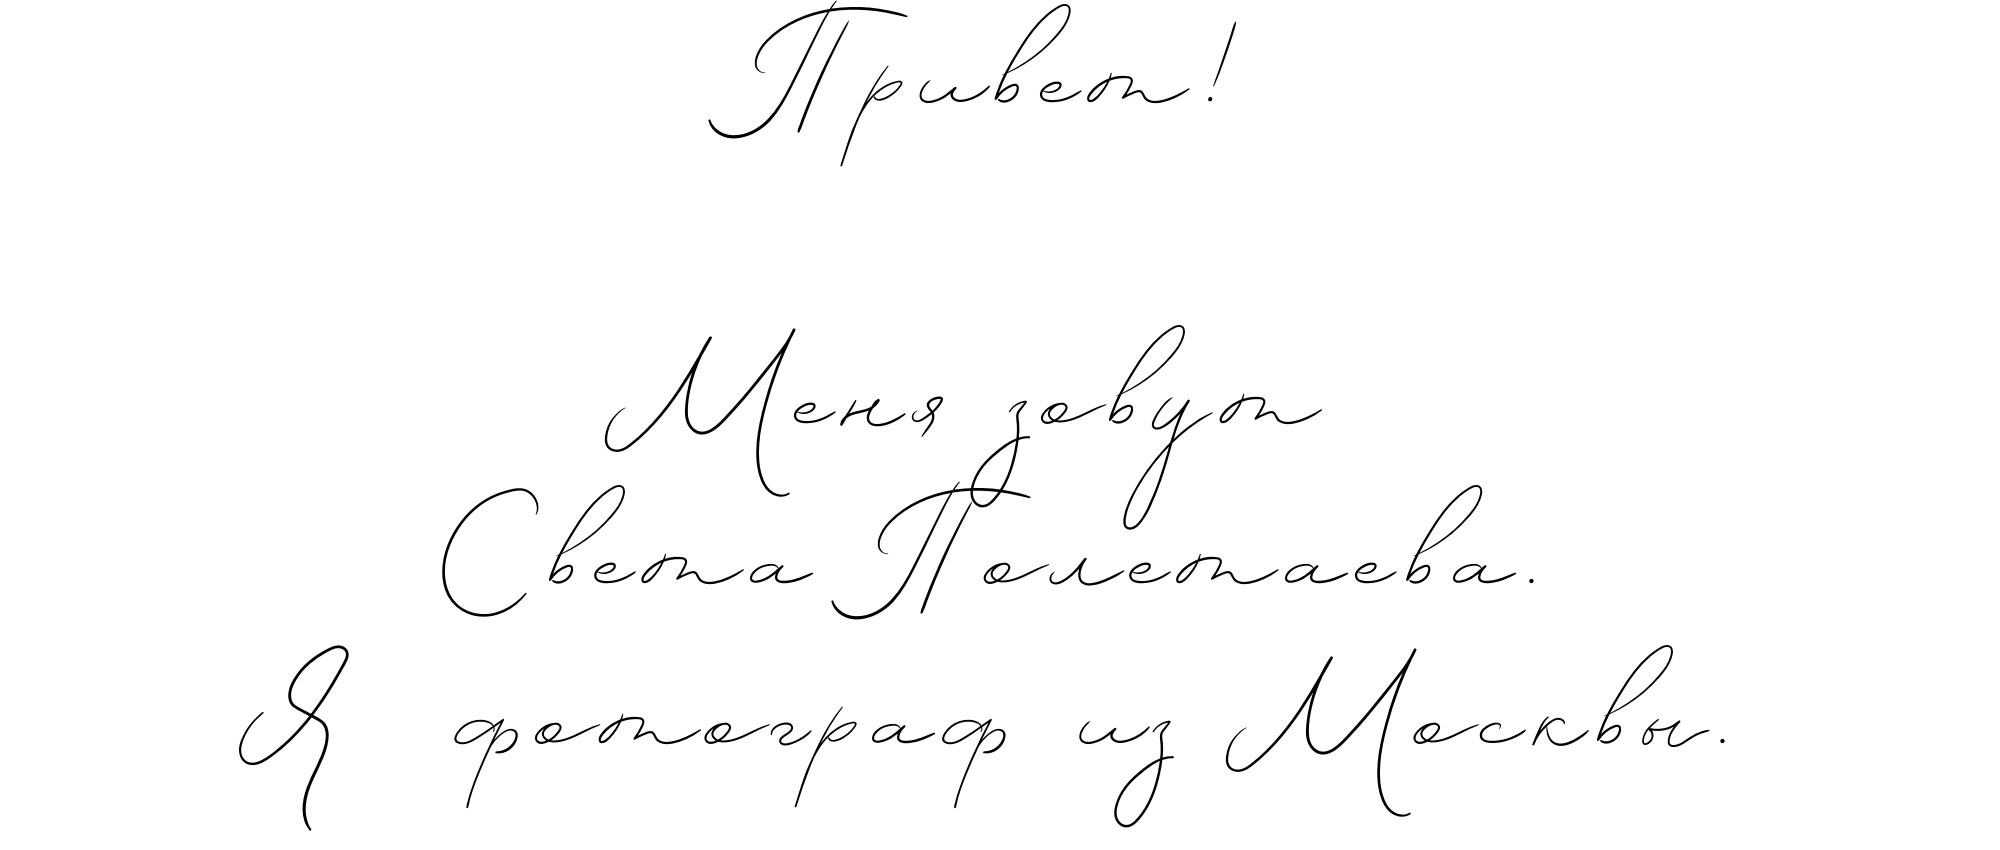 Привет!
Меня зовут
Света Полетаева.
Я фотограф из Москвы.